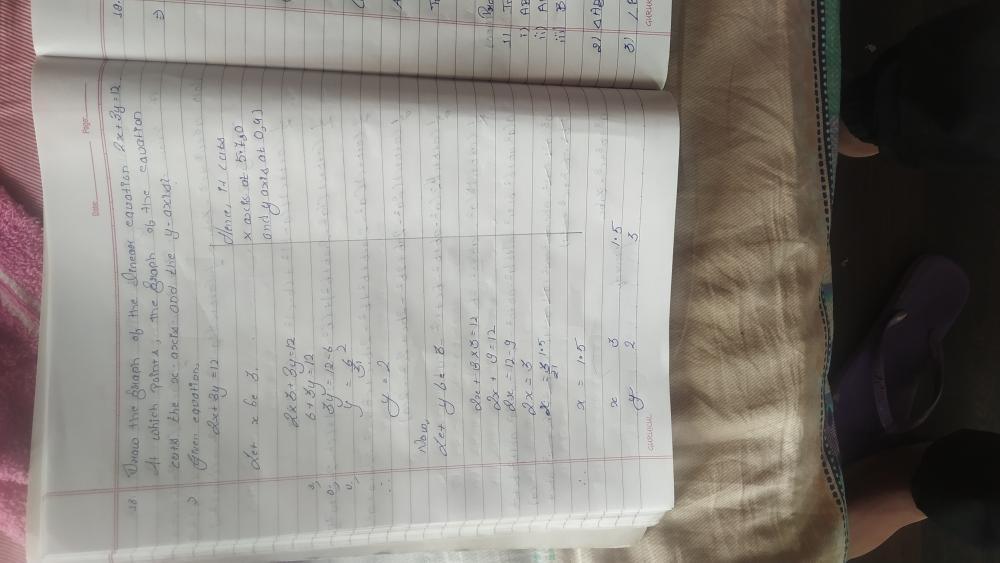 Date
Page
18 Draw the graph of the linear equation 2x+3y=12.
At which points, the graph of the equation
cuts the x-axis and the y-axis?
Given equation.
2x+3y=12
Let x be 3.
2x3+3y=12
6+3y=12
3y=12-6
y=6 2
3
y=2
Now,
Let y be 3.
2x+3x3=12
2x+9=12
2x=12-9
2x=3
x=3 1.5
2
∴ x=1.5
x 3 1.5
y 2 3
Hence, it cuts
x axis at 5.7,0
and y axis at 0,4
GURUKUL
18.
1)
i) AB
ii)
iii)
2) ΔAB
3)
GURUKUL